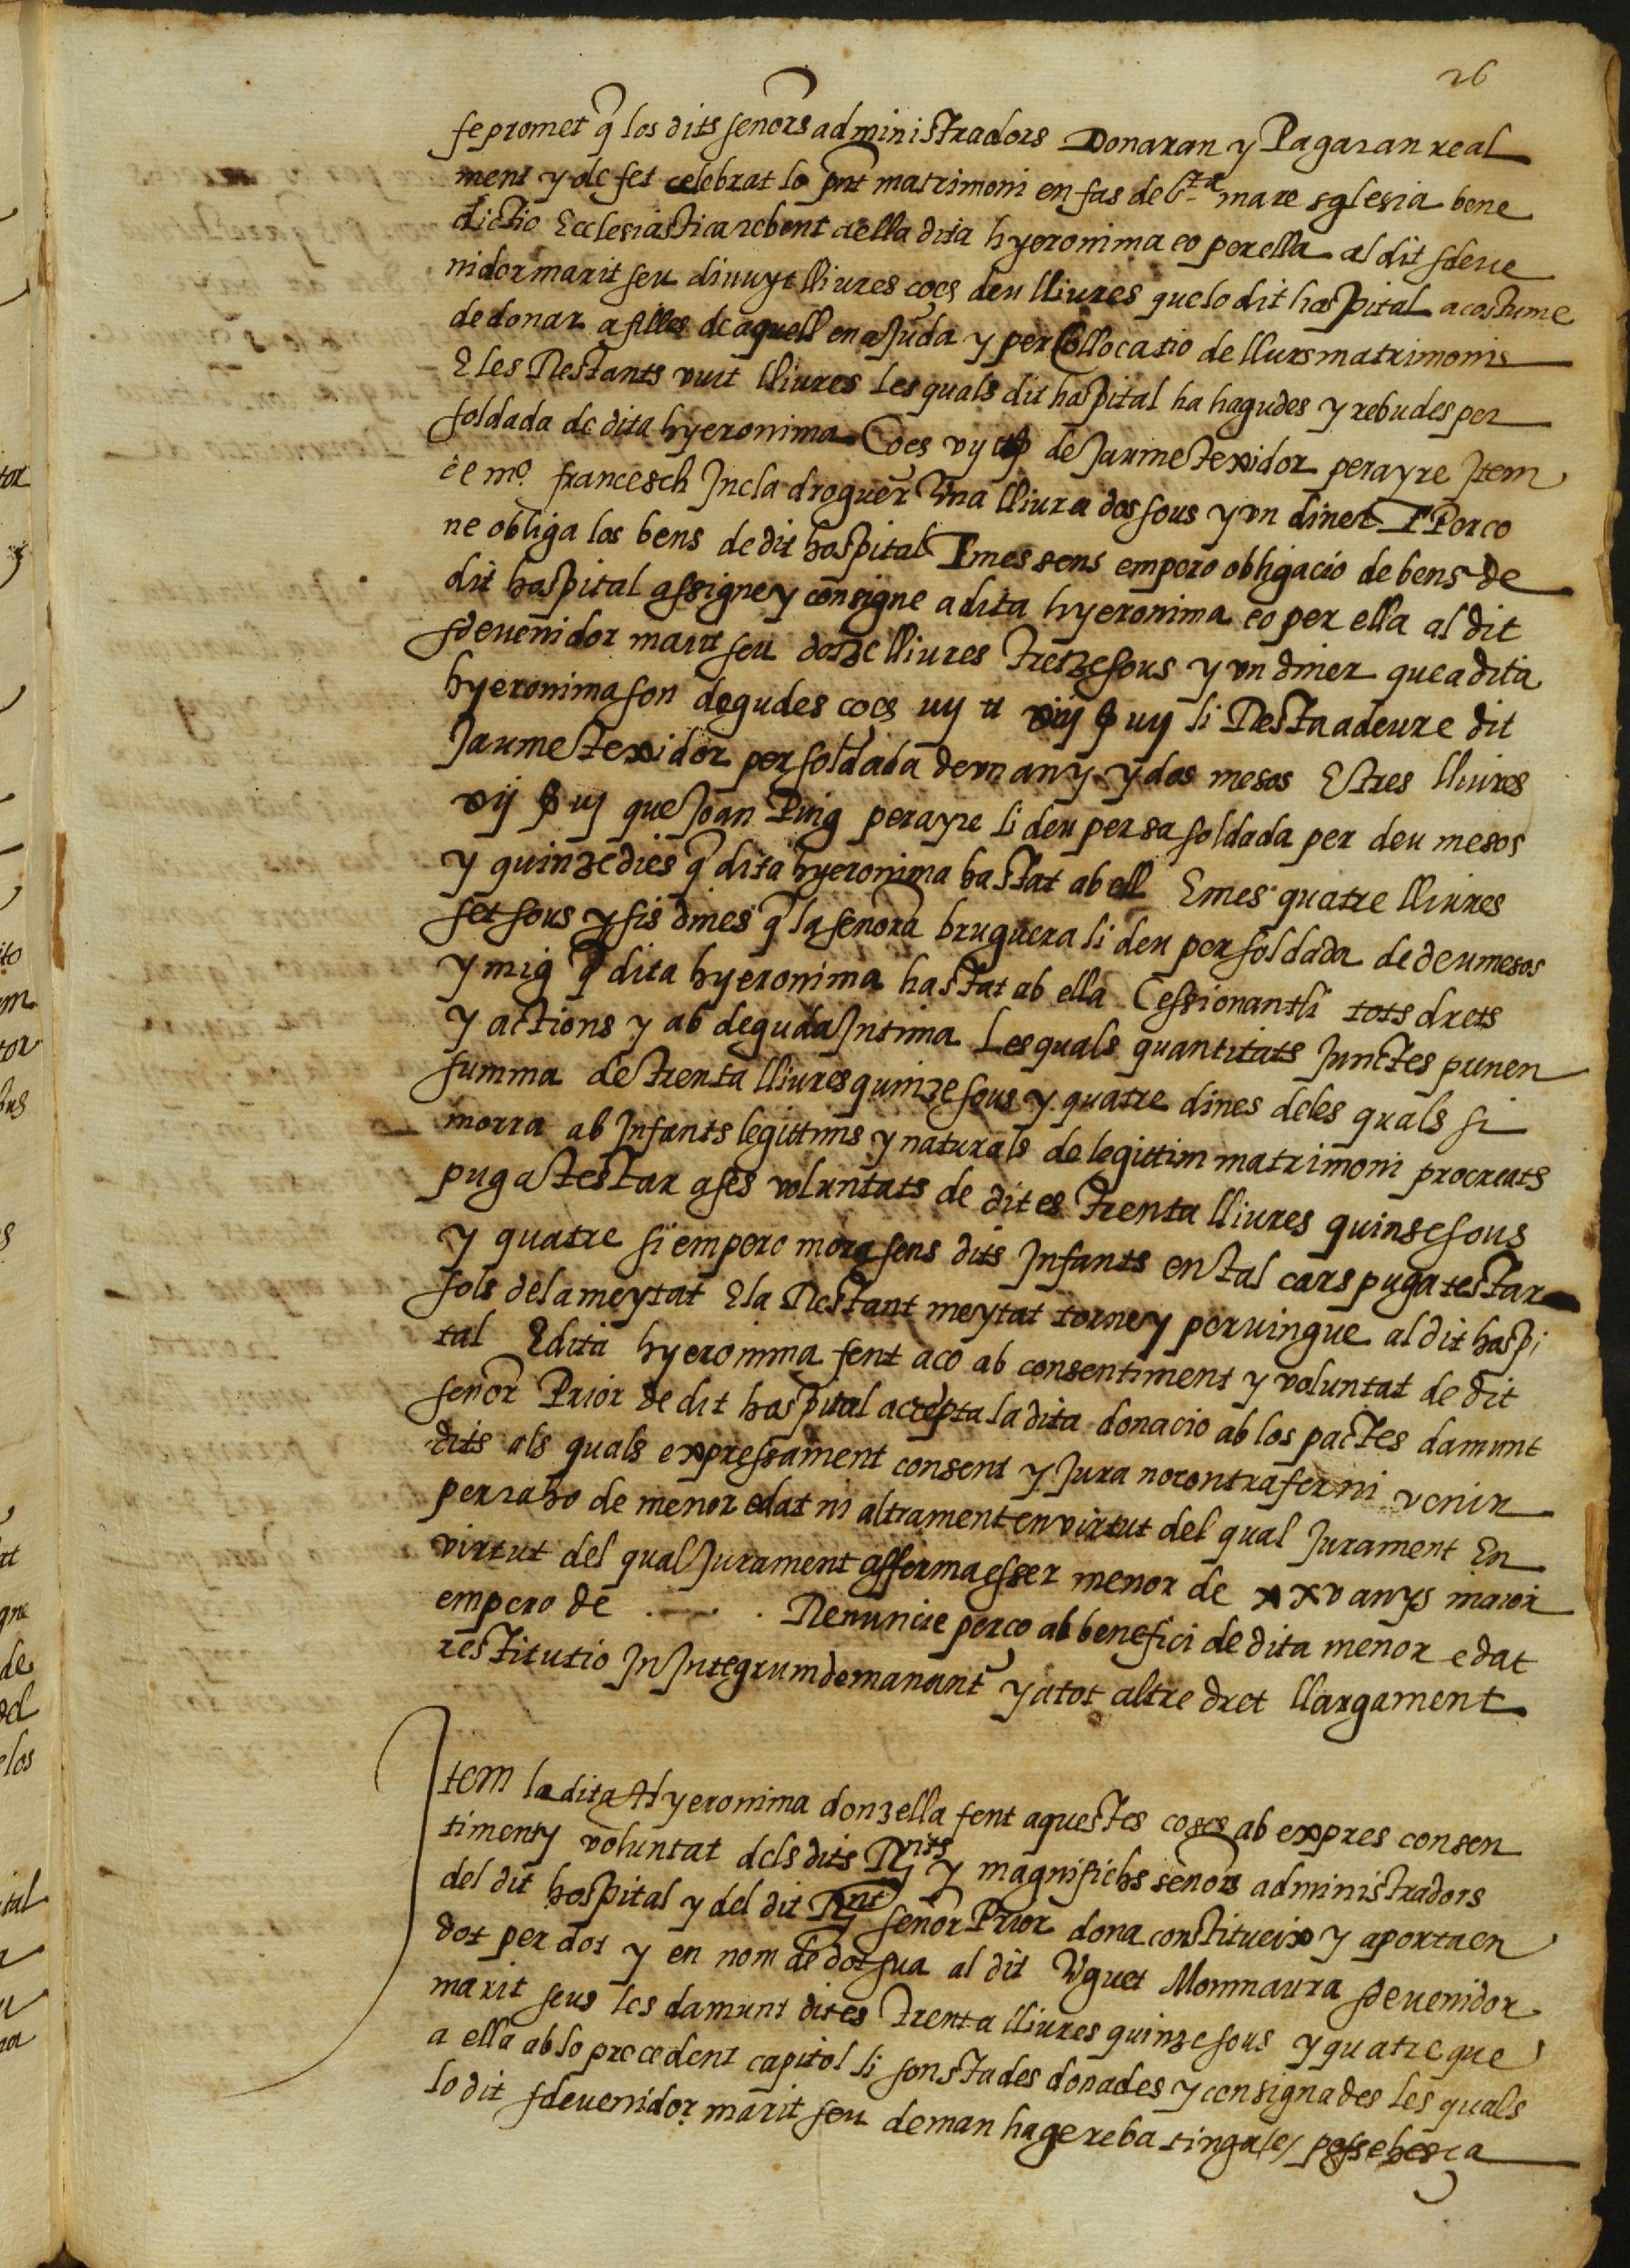 26
se promet q̃ los dits señors administradors Donaran y Pagaran real
ment y de fet celebrat lo pñt matrimoni en fas de S.ta mare sglesia bene
dictio Ecclesiastica rebent a ella dita hyeronima eo per ella al dit sdeve
nidor marit seu divuyt lliures çoes deu lliures que lo dit hospital acostume
de donar a filles de aquell en ajuda y per Collocatio de llurs matrimonis
E les Restants vuit lliures Les quals dit hospital ha hagudes y rebudes per
soldada de dita hyeronima Çoes vij de Jaume texidor perayre Item
de m.º francesch Incla droguer Una lliura dos sous y vn diner E Perço
ne obliga los bens de dit hospital E mes sens empero obligacio de bens de
dit hospital assigne y consigne a dita hyeronima eo per ella al dit
sdevenidor marit seu dotze lliures tretze sous y vn diner que a dita
hyeronima son degudes çoes iiij ll viij s iiij li Resta a deure dit
Jaume texidor per soldada de vn any y dos mesos E tres lliures
vij s iij que Joan Puig perayre li deu per sa soldada per deu mesos
y quinze dies q̃ dita hyeronima ha stat ab ell E mes quatre lliures
set sous y sis dines q̃ la señora bruguera li deu per soldada de deu mesos
y mig q̃ dita hyeronima ha stat ab ella Cessionantli tots drets
y actions y ab deguda Intima Les quals quantitats Junctes prenen
summa de trenta lliures quinze sous y quatre dines deles quals si
morra ab Infants legittims y naturals de legittim matrimoni procreats
puga testar a ses voluntats de dites trenta lliures quinse sous
y quatre si empero mora sens dits Infants en tal cars puga testar
sols dela meytat E la Restant meytat torne y pervingue al dit hospi
tal E dita hyeronima fent aço ab consentiment y voluntat de dit
señor Prior de dit hospital accepta la dita donacio ab los pactes damunt
dits als quals expressament consent y Jura no contrafer ni venir
per raho de menor edat ni altrament en virtut del qual Jurament En
virtut del qual Jurament afferma esser menor de xxv anys maior
empero de . — . . Renuncie perço ab benefici de dita menor edat
restitutio In Integrum demanant y a tot altre dret llargament
Item la dita Hyeronima donzella fent aquestes coses ab expres consen
timent y voluntat dels dits R.nts y magnifichs señors administradors
del dit hospital y del dit R.nt señor Prior dona constitueix y aporta en
dot per dot y en nom de dot sua al dit Uguet Monmaura sdevenidor
marit seus les damunt dites trenta lliures quinze sous y quatre que
a ella ab lo precedent capitol li son stades donades y consignades les quals
lo dit sdevenidor marit seu deman hage reba tinga e possehesca